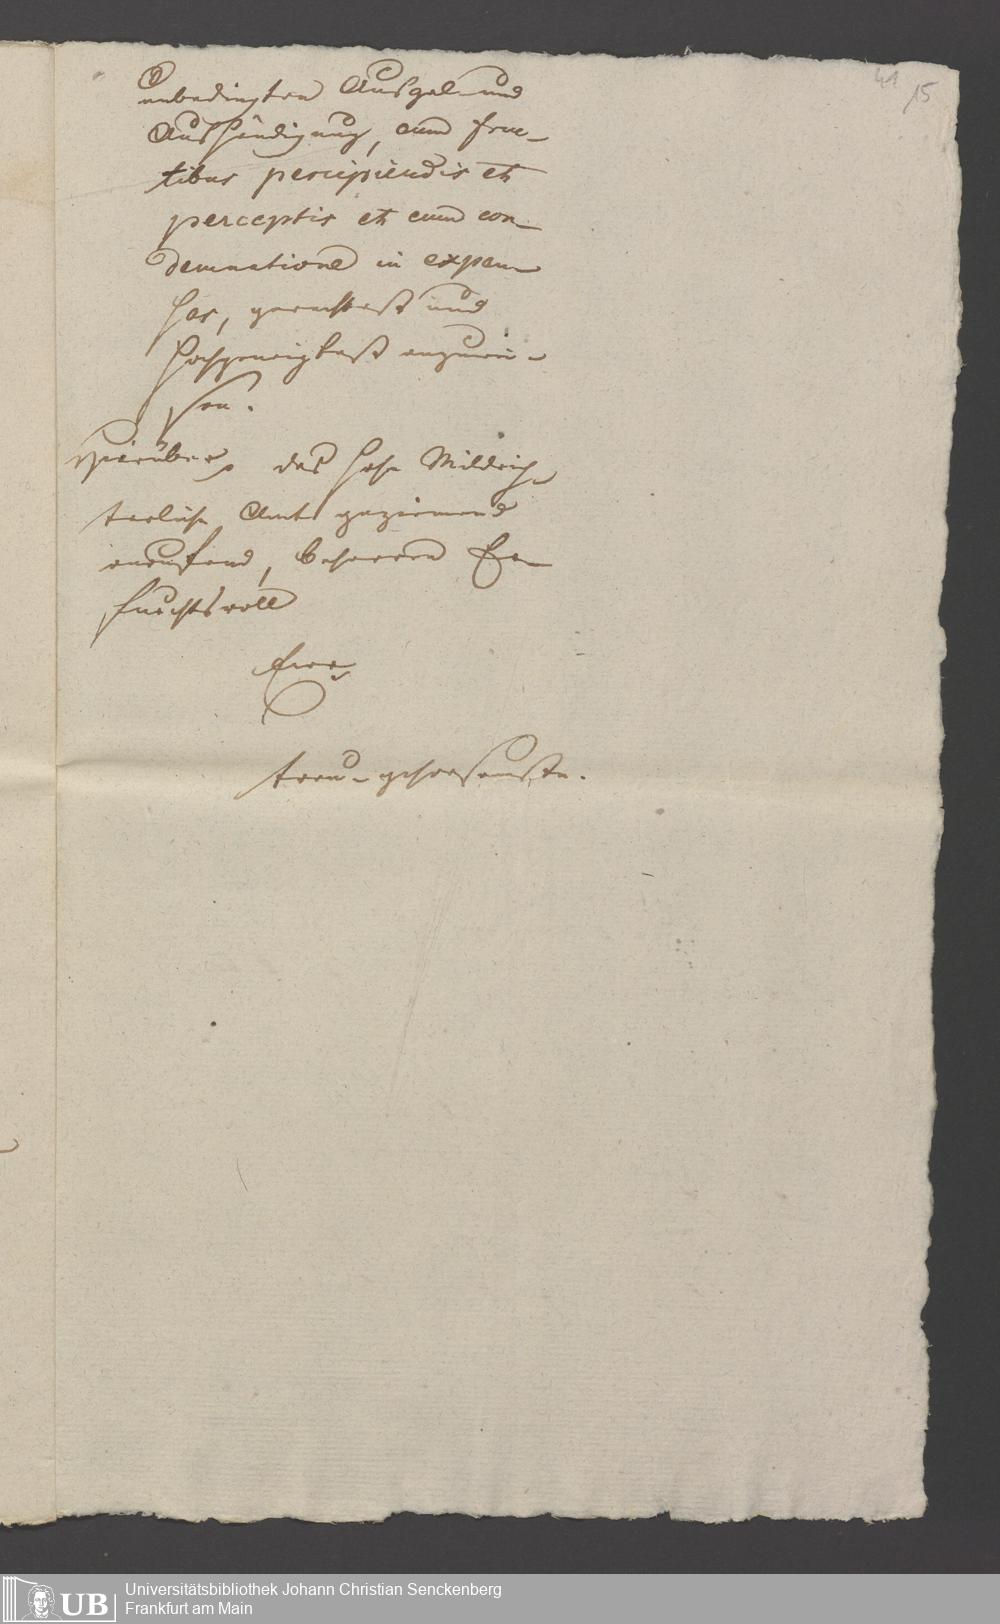 41 15
unbedingten Ausgab- und
Aushändigung, cum fruc-
tibus percipiendis et
perceptis et cum con-
demnatione in expen-
sas, gerechtest und
hochgeneigtest anzuwei-
sen.
Hierüber, das hohe Mildrich-
terliche Amt geziemend
anrufend, beharren Er-
furchtsvoll
Ewr
treu-gehorsamste.
UB Universitätsbibliothek Johann Christian Senckenberg
Frankfurt am Main